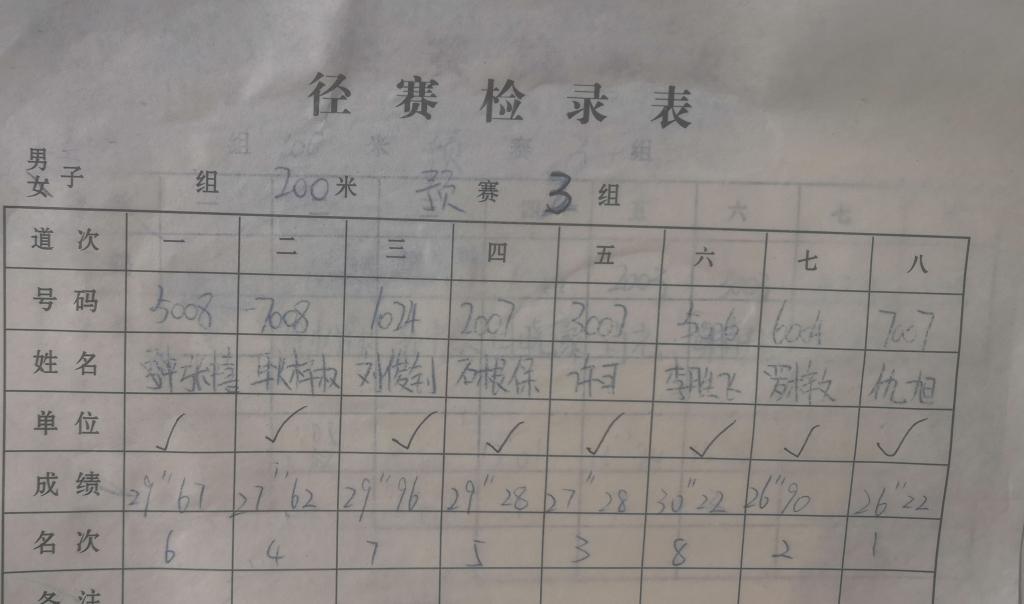 径赛检录表
男女子 组 200米 预赛 3组
道次 一 二 三 四 五 六 七 八
号码 5008 7008 1024 2007 3007 5006 6004 7007
姓名 刘俊钊 石根保 许可 李胜飞 仇旭
单位 ✓ ✓ ✓ ✓ ✓ ✓ ✓ ✓
成绩 29"67 27"62 29"96 29"28 27"28 30"22 26"90 26"22
名次 6 4 7 5 3 8 2 1
备注